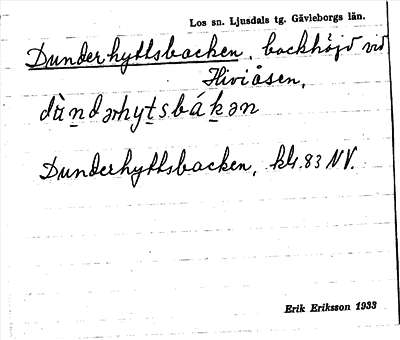 Los sn. Ljusdals tg. Gävleborgs län.
Dunderhyttsbacken, backhöjd vid
Hiviåsen.
dùn̲dərhyt̲sbák̲ən
Dunderhyttsbacken, kbl. 83 NV.
Erik Eriksson 1933